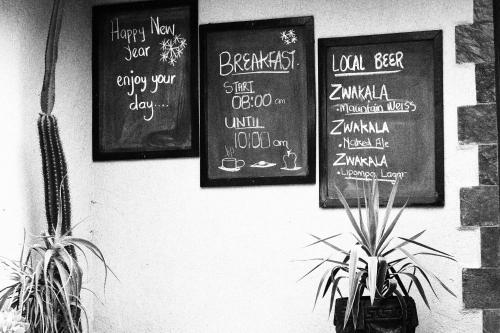 Happy New
Year
enjoy your
day....
BREAKFAST.
START
08:00 am
UNTIL
10:00 am
LOCAL BEER
ZWAKALA
• Mountain Weiss
ZWAKALA
• Naked Ale
ZWAKALA
• Limpopo Lager